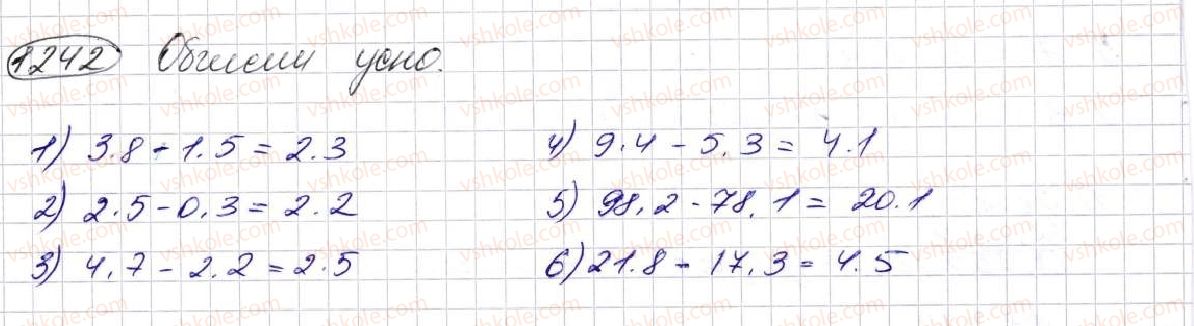 1242 Обчисли усно.
1) 3.8 - 1.5 = 2.3
2) 2.5 - 0.3 = 2.2
3) 4.7 - 2.2 = 2.5
4) 9.4 - 5.3 = 4.1
5) 98.2 - 78.1 = 20.1
6) 21.8 - 17.3 = 4.5
vshkole.com